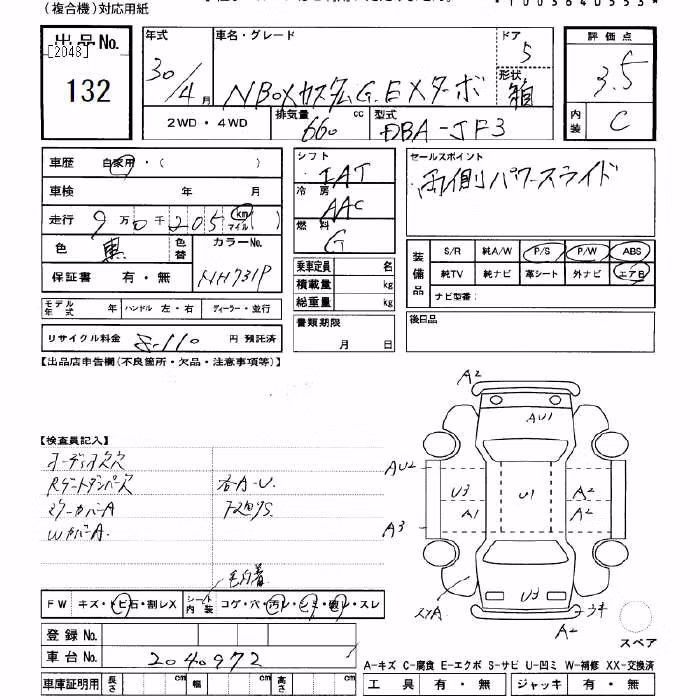 (複合機)対応用紙
*10036405553*
出品No.
[2048]
132
年式
30/4月
車名・グレード
NBOXカスタムG.EXターボ
ドア
5
形状
箱
2WD・4WD
排気量
660 cc
型式
DBA-JF3
評価点
3.5
内装
C
車歴 自家用・( )
車検 年 月
走行 9万0千205 km マイル ( )
色 黒 色替 カラーNo. NH731P
保証書 有・無
モデル年式 年 ハンドル 左・右 ディーラー・並行
リサイクル料金 8.110 円 預託済
シフト
IAT
冷房
AAC
燃料
G
乗車定員 名
積載量 kg
総重量 kg
書類期限
月 日
セールスポイント
両側パワースライド
装備品
S/R 純A/W P/S P/W ABS
純TV 純ナビ 革シート 外ナビ エアB
ナビ型番:
後日品
【出品店申告欄(不良箇所・欠品・注意事項等)】
【検査員記入】
オーディオ欠
Rゲートダンパー欠
ミラーカバーA
WカバーA.
右A-U.
毛付着
FW キズ・トビ石・割レX シート内装 コゲ・穴・汚レ・シミ・破レ・スレ
登録No.
車台No. 2040972
車庫証明用 長さ cm 幅 cm 高さ cm
A2
AU1
AU2
U3
U1
A2
A3
A1
A2
U3
A2
スペア
A-キズ C-腐食 E-エクボ S-サビ U-凹ミ W-補修 XX-交換済
工具 有・無 ジャッキ 有・無